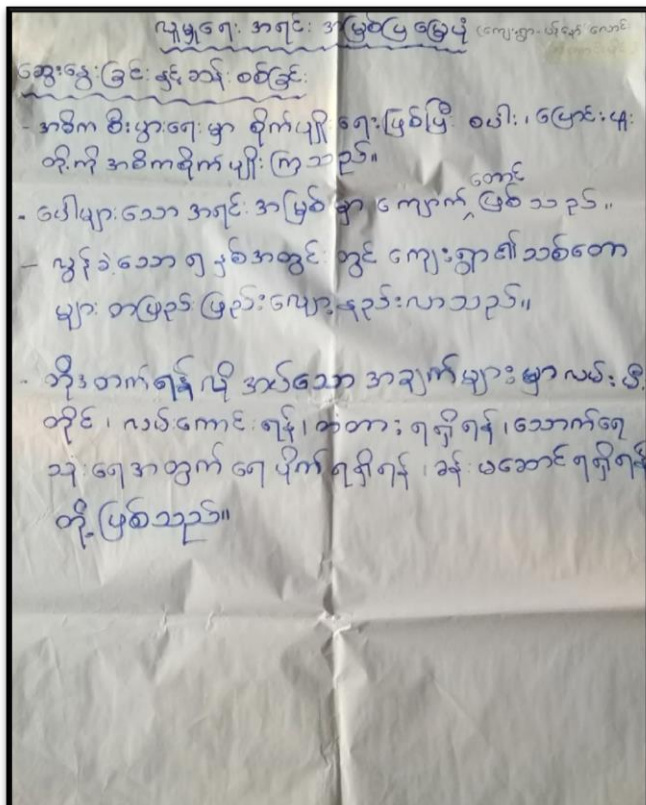 လူမှုရေး အရင်း အမြစ်ပြ မြေပုံ (ကျေးရွာ-
ဆွေးနွေးခြင်း နှင့် ဆန်းစစ်ခြင်း
- အဓိက စီးပွားရေးမှာ စိုက်ပျိုးရေးဖြစ်ပြီး စပါး၊ ပြောင်းဖူး
တို့ကို အဓိကစိုက်ပျိုးကြသည်။
- ပေါများသော အရင်းအမြစ်မှာ ကျောက်တောင်ဖြစ်သည်။
- လွန်ခဲ့သော ၅ နှစ်အတွင်းတွင် ကျေးရွာ၏သစ်တော
များ တဖြည်းဖြည်းလျော့နည်းလာသည်။
- တိုးတက်ရန် လိုအပ်သော အချက်များမှာ လမ်း၊ မီး
တိုင်၊ လမ်းကောင်းရန်၊ တံတားရရှိရန်၊ သောက်ရေ
သုံးရေအတွက် ရေပိုက်ရရှိရန်၊ ခန်းမဆောင်ရရှိရန်
တို့ဖြစ်သည်။